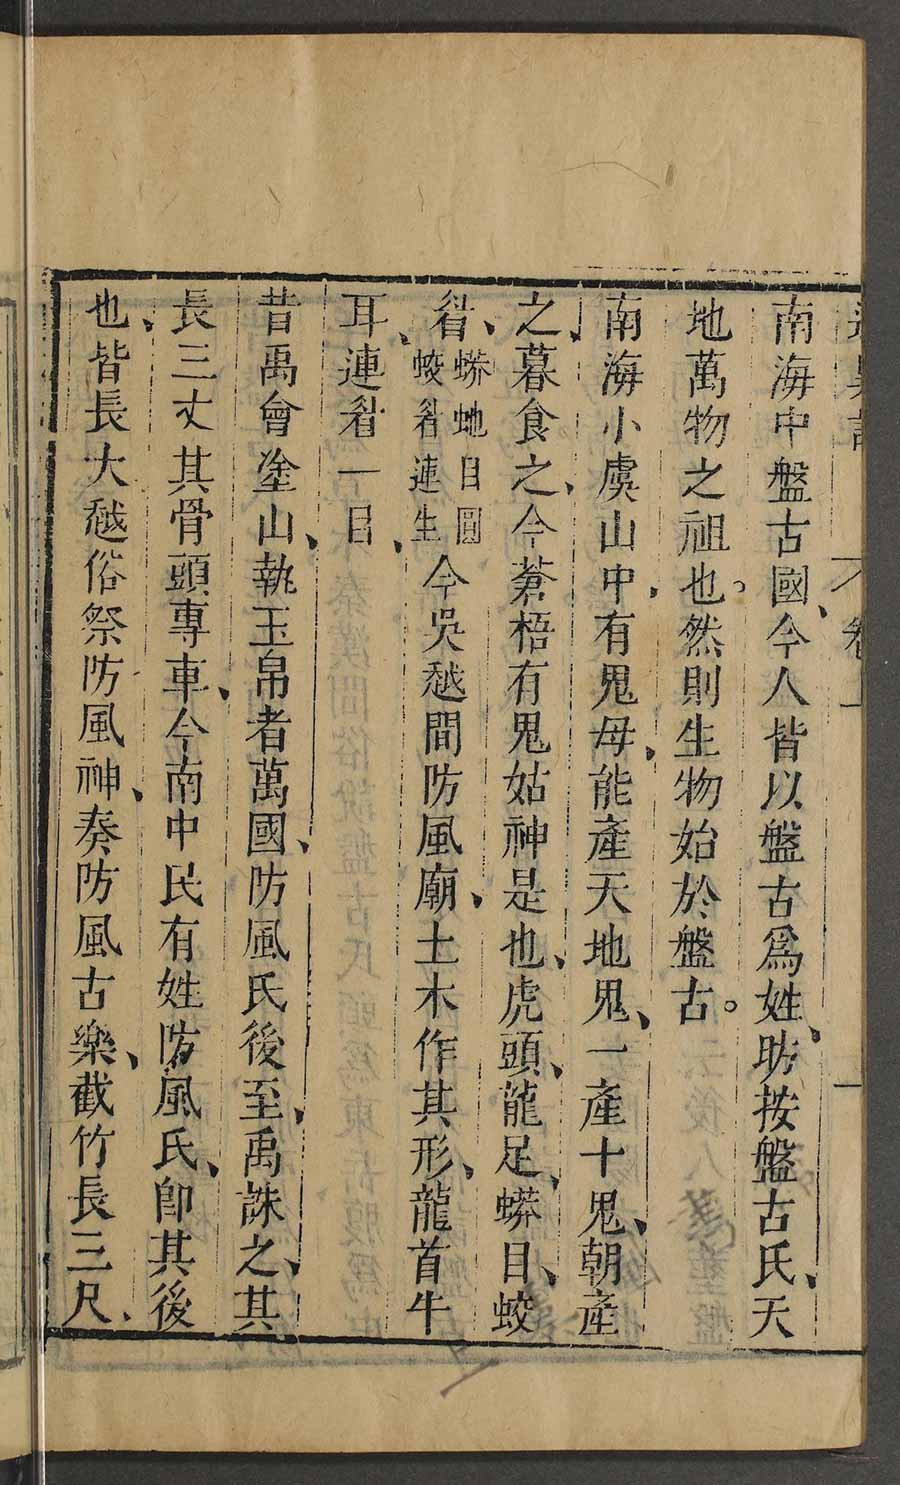 述異記 卷上 一
南海中盤古國、今人皆以盤古爲姓、昉按盤古氏、天
地萬物之祖也。然則生物始於盤古。
南海小虞山中、有鬼母、能產天地鬼、一產十鬼、朝產
之、暮食之、今蒼梧有鬼姑神是也、虎頭、龍足、蟒目、蛟
眉、蟒虵目圓蛟眉連生今吳越間防風廟、土木作其形、龍首牛
耳、連眉一目、
昔禹會塗山、執玉帛者萬國、防風氏後至、禹誅之、其
長三丈其骨頭專車、今南中民有姓防風氏、卽其後
也、皆長大越俗祭防風神、奏防風古樂、截竹長三尺、